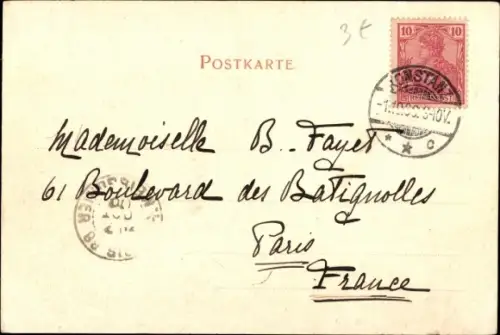 3€
10 10
POSTKARTE
KONSTANZ
* * c
Mademoiselle B. Fayet
61 Boulevard des Batignolles
Paris
France